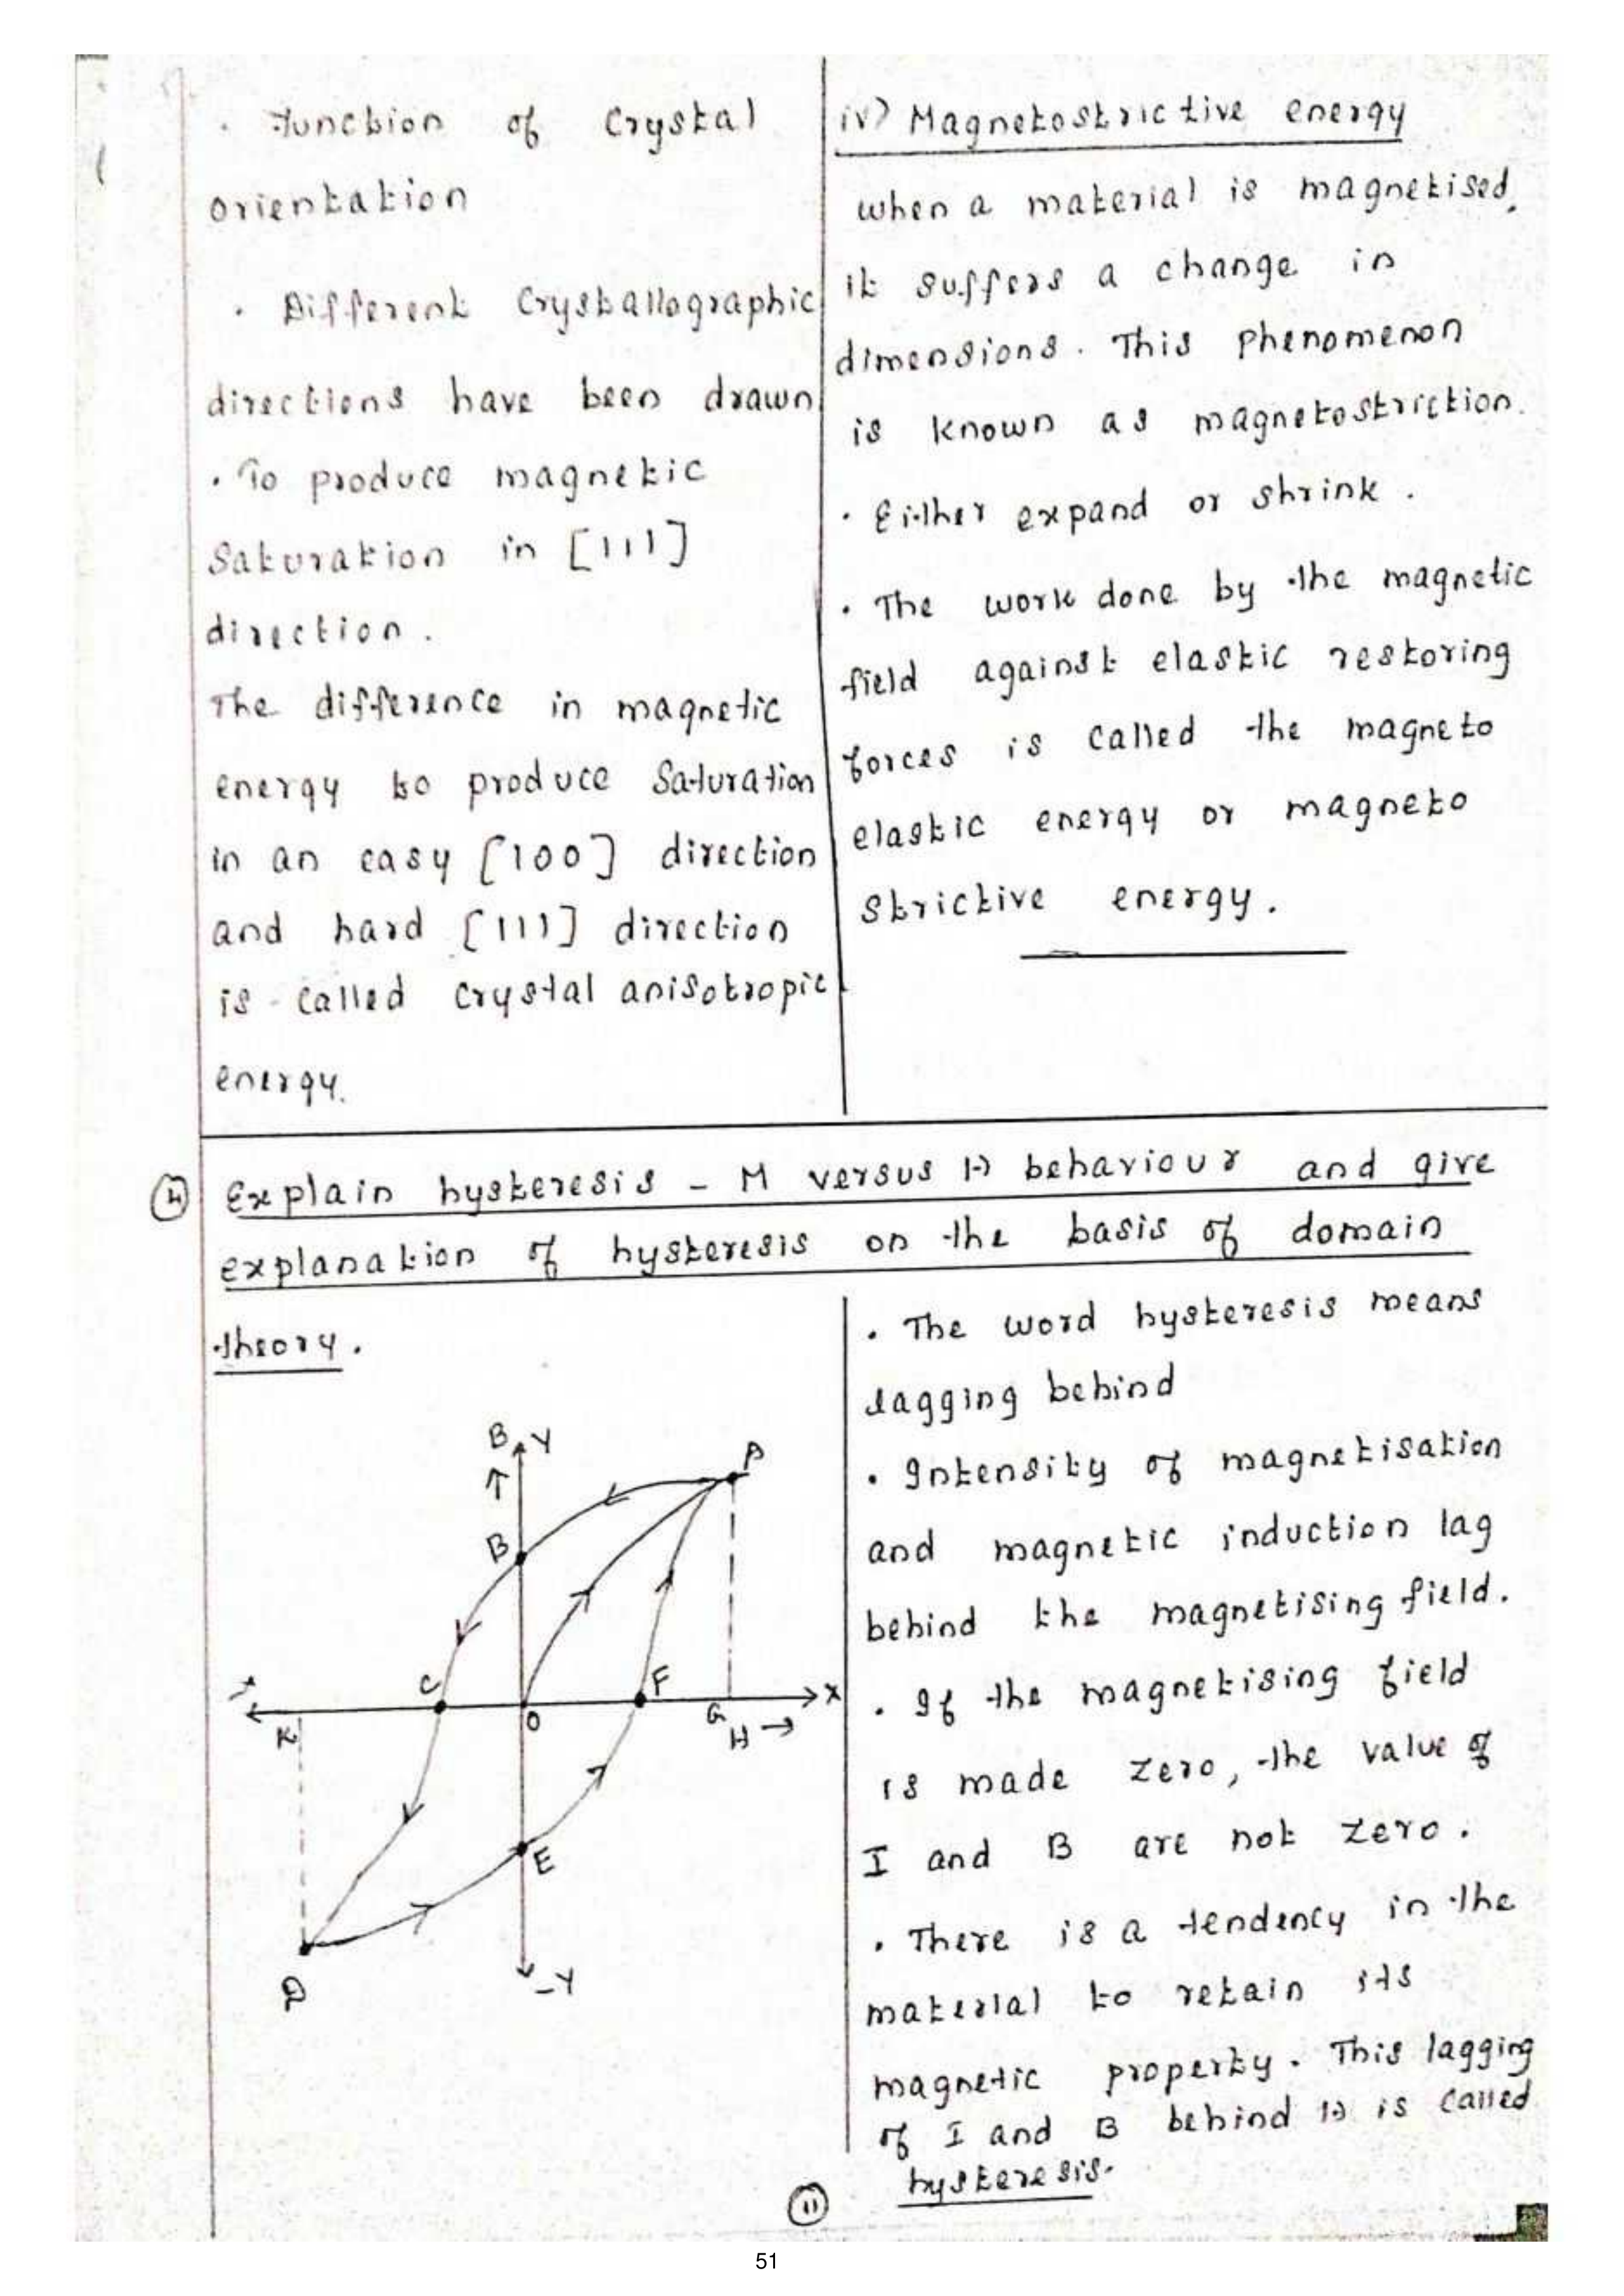 · Function of Crystal
orientation
· Different Crystallographic
directions have been drawn
· To produce magnetic
Saturation in [111]
direction.
The difference in magnetic
energy to produce Saturation
in an easy [100] direction
and hard [111] direction
is called Crystal anisotropic
energy.
iv) Magnetostrictive energy
when a material is magnetised,
it suffers a change in
dimensions. This phenomenon
is known as magnetostriction.
· Either expand or shrink.
· The work done by the magnetic
field against elastic restoring
forces is called the magneto
elastic energy or magneto
strictive energy.
④ Explain hysteresis - M versus H behaviour and give
explanation of hysteresis on the basis of domain
theory.
B Y
A
B
C
F
X
K
O
G
H →
E
-Y
D
· The word hysteresis means
lagging behind
· Intensity of magnetisation
and magnetic induction lag
behind the magnetising field.
· If the magnetising field
is made zero, the value of
I and B are not zero.
· There is a tendency in the
material to retain its
magnetic property. This lagging
of I and B behind H is called
hysteresis.
11
51